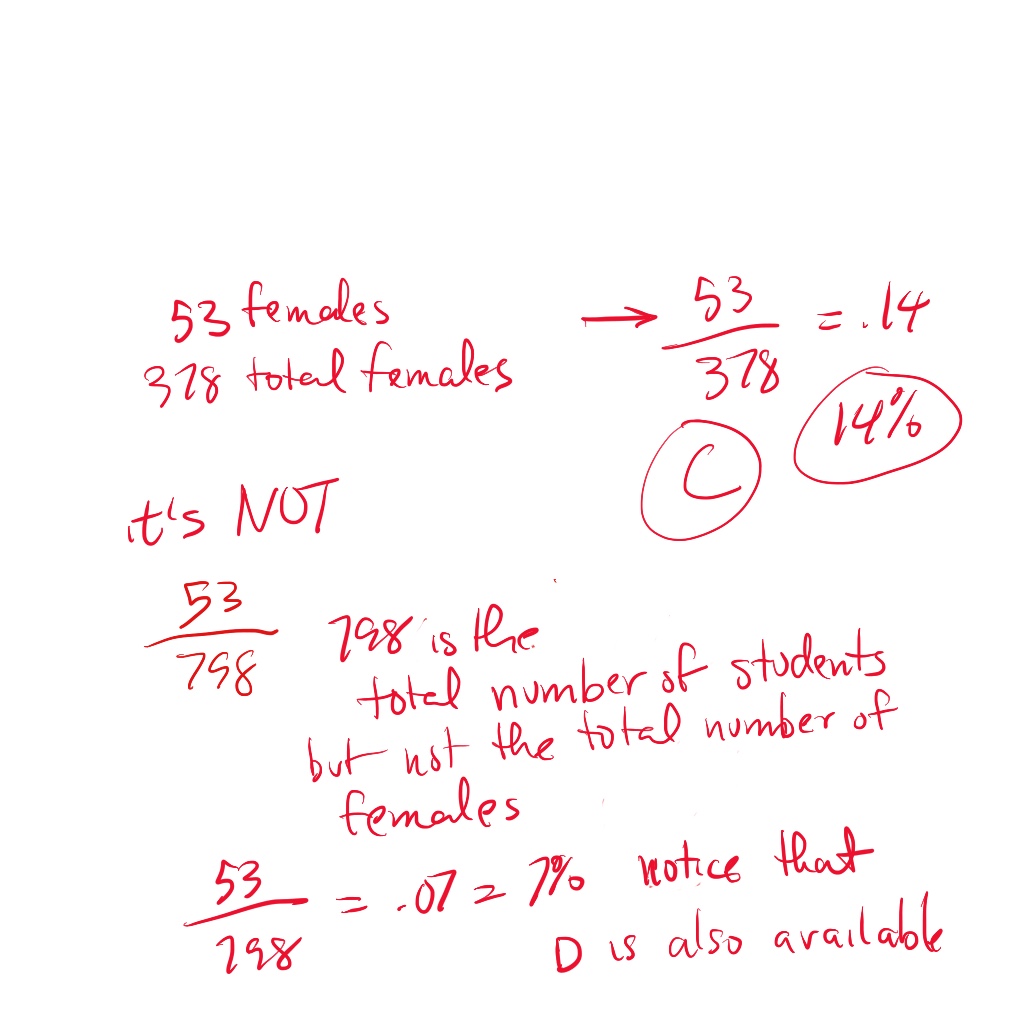 53 females → 53/378 = .14
378 total females
14%
C
it's NOT
53/798
798 is the
total number of students
but not the total number of
females
53/798 = .07 = 7% notice that
D is also available